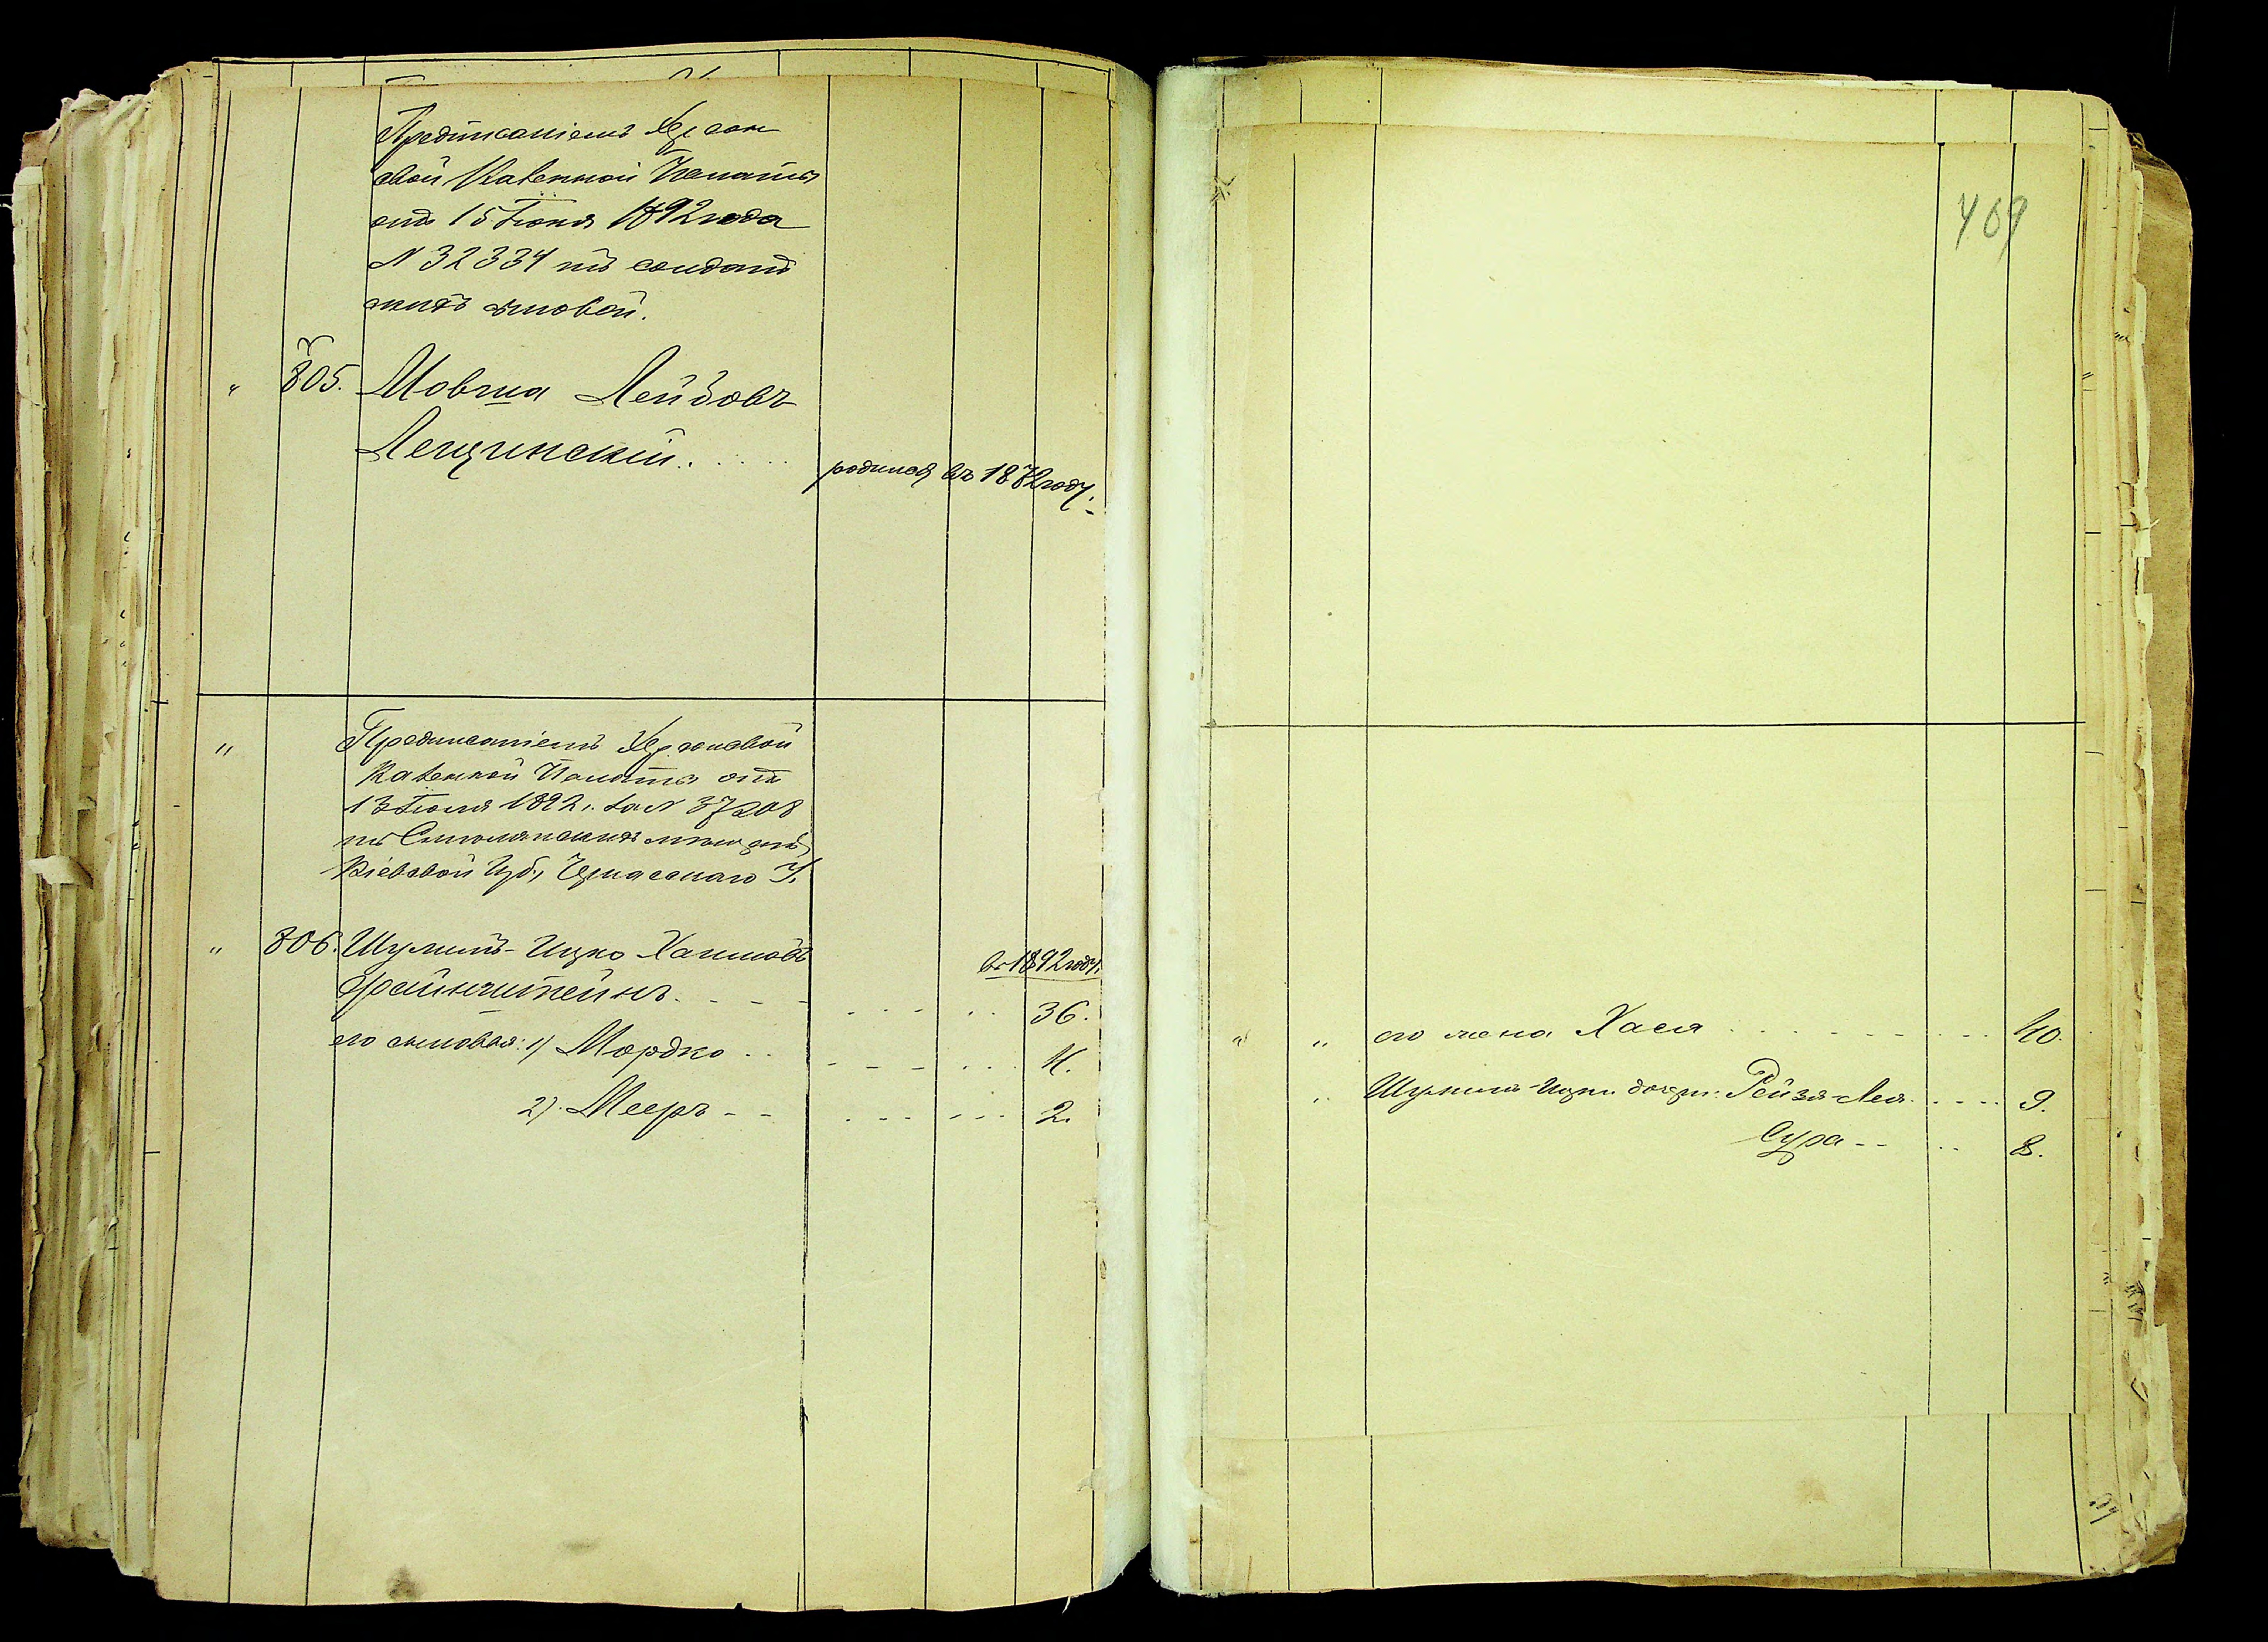 Предписаніемъ Херсон
ской Казенной Палаты
отъ 15 Іюня 1892 года
N 32334 изъ солдат
скихъ сыновей.
" 805. Мовша Лейбовъ
Лещинскій. родился въ 1872 году.
" Предписаніемъ Херсонской
Казенной Палаты отъ
13 Іюля 1892 г. за N 37208
изъ мѣщанъ
Кіевской Губ., Черкасскаго У.
" 806. Шулимъ-Ицко Хаимовъ
въ 1892 году.
Файнштейнъ. 36.
его сыновья: 1) Мордко 4.
2). Мееръ 2.
409
" " его жена Хася 40.
" Шулимъ-Ицки дочери: Рейзя-Лея 9.
Сура 8.